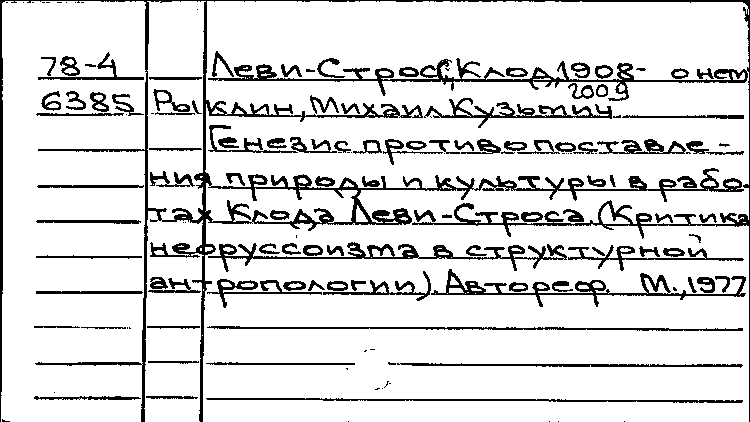 78-4 Леви-Строс, Клод, 1908- о нем
2009
6385 Рыклин, Михаил Кузьмич
Генезис противопоставле-
ния природы и культуры в рабо-
тах Клода Леви-Строса. (Критика
неоруссоизма в структурной
антропологии). Автореф. М., 1977